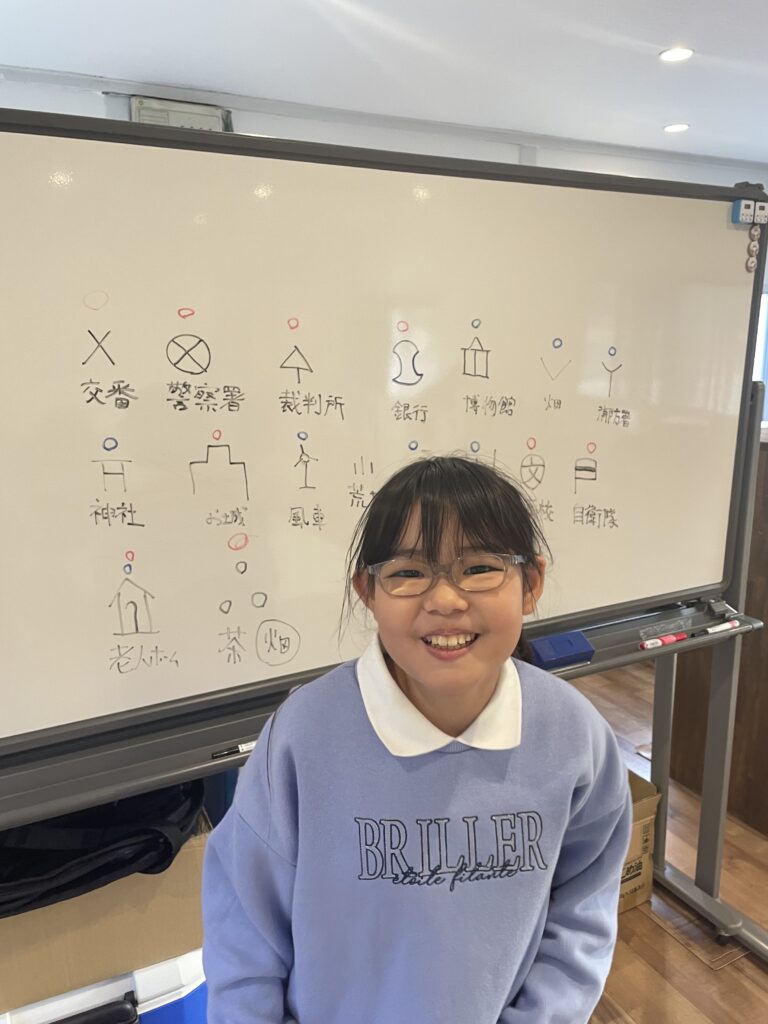 交番 警察署 裁判所 銀行 博物館 畑 消防署
神社 お城 風車 荒 自衛隊
老人ホーム 茶 畑
BRILLER
étoile filante